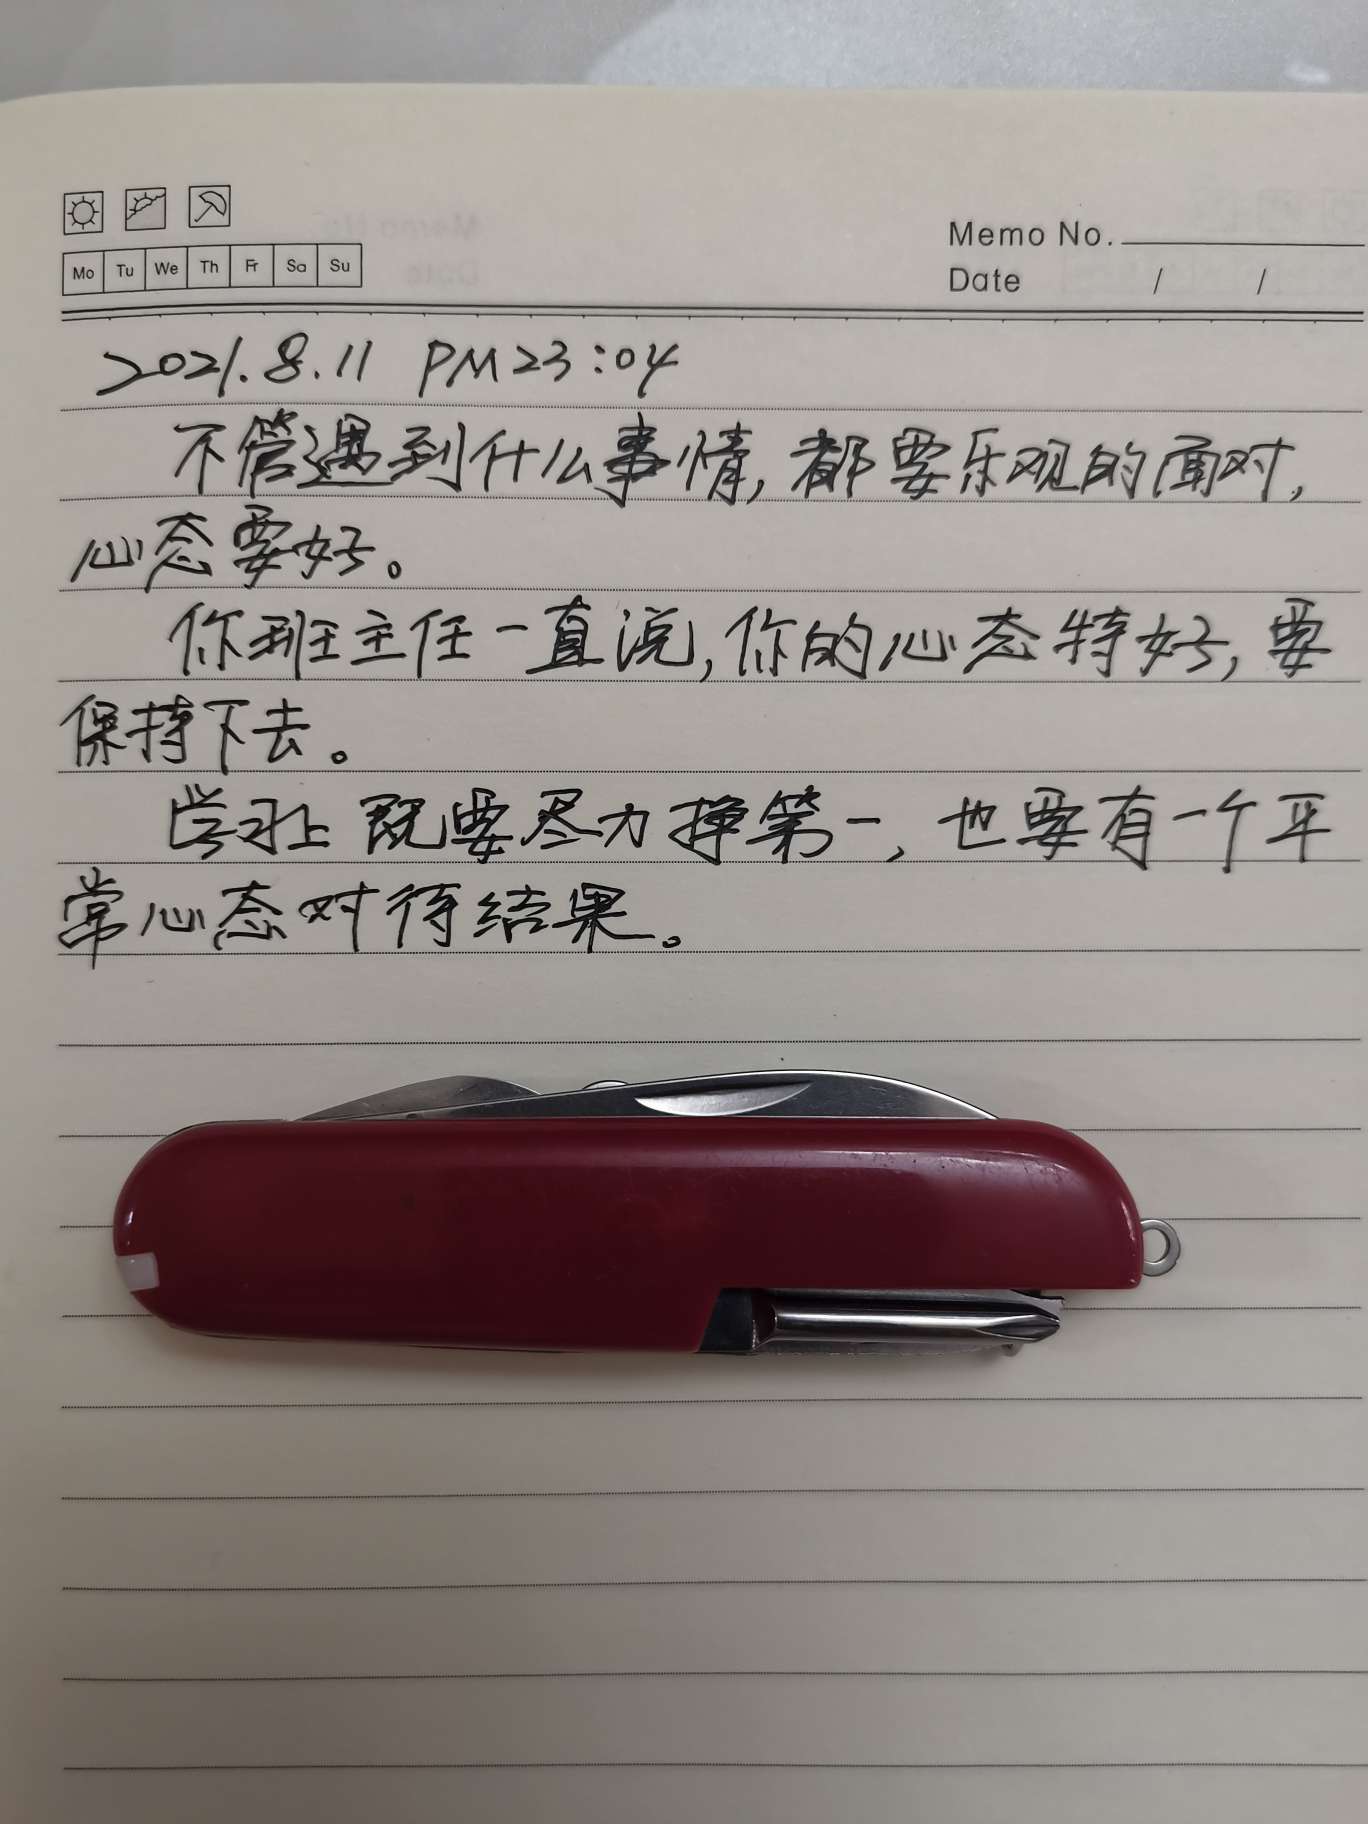 Memo No.
Mo Tu We Th Fr Sa Su
Date / /
2021.8.11 PM23:04
不管遇到什么事情,都要乐观的面对,
心态要好。
你班主任一直说,你的心态特好,要
保持下去。
学习上既要尽力挣第一,也要有一个平
常心态对待结果。